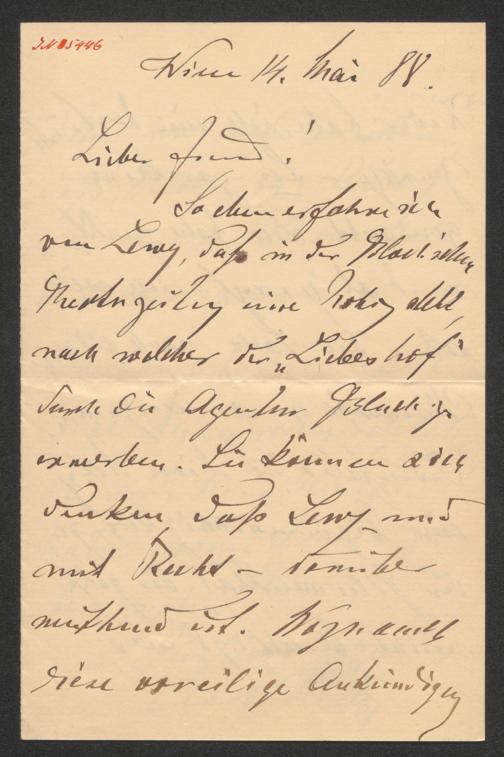 J.N 85446
Wien 14. Mai 88.
Lieber Freund!
Soeben erfahre ich
von Lewy, daß in der Bloch'schen
Theaterzeitung eine Notiz steht,
nach welcher der „Liebeshof"
durch die Agentur Bloch zu
erwerben. Sie können sich
denken, daß Lewy – und
mit Recht – darüber
wüthend ist. 
diese voreilige Ankündigung